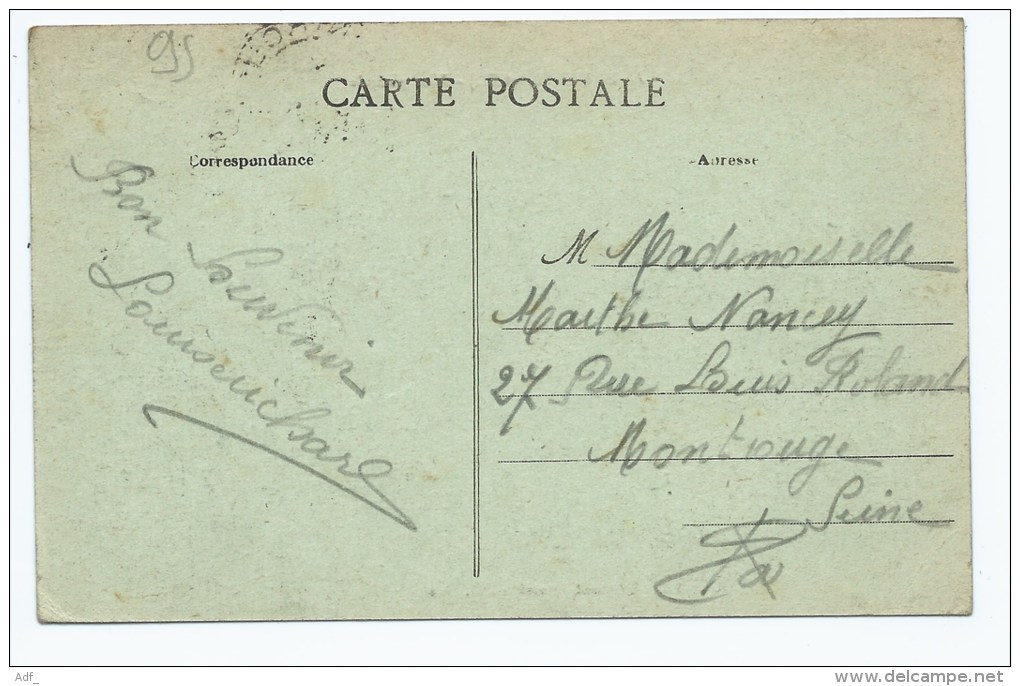 95
CARTE POSTALE
Correspondance
Adresse
Bon
Souvenir
M Mademoiselle
Marthe Nancey
27 Rue Louis Roland
Montrouge
Seine
Adf_
www.delcampe.net